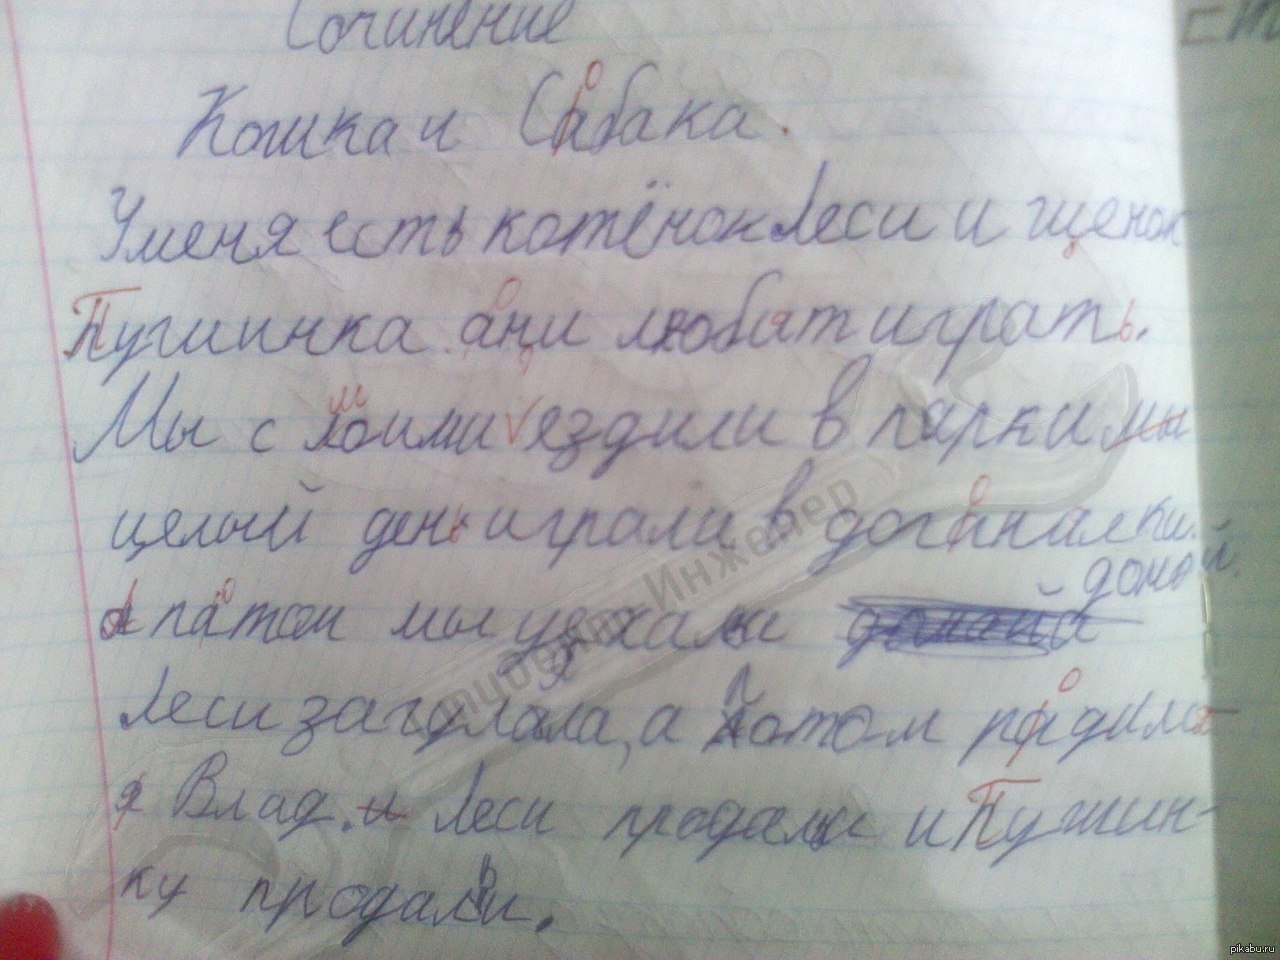 Сочинение
Кошка и Сабака.
У меня есть котёнок Леси и щенок
Пушинка. ани любят играть.
Мы с моими ездили в парк и мы
целый день играли в доганялки.
патом мы уехали домой.
Леси загуляла, а Потом радилс
я Влад. и Леси продали и Пушин-
ку продали.
Инженер
pikabu.ru